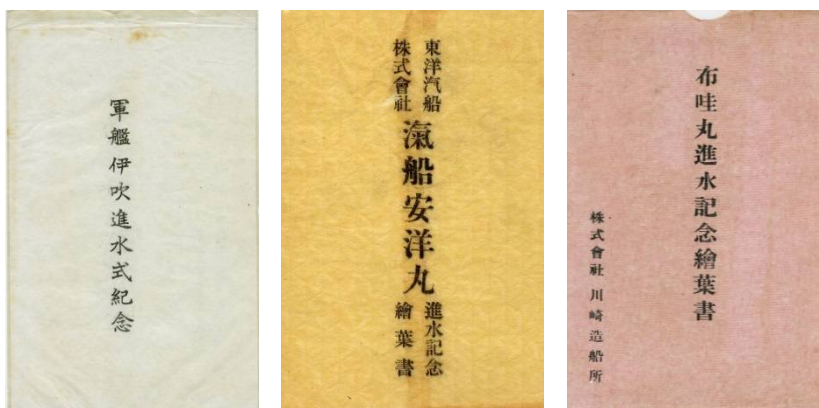 軍艦伊吹進水式紀念
東洋汽船
株式會社
滊船安洋丸
進水記念
繪葉書
布哇丸進水記念繪葉書
株式會社川崎造船所